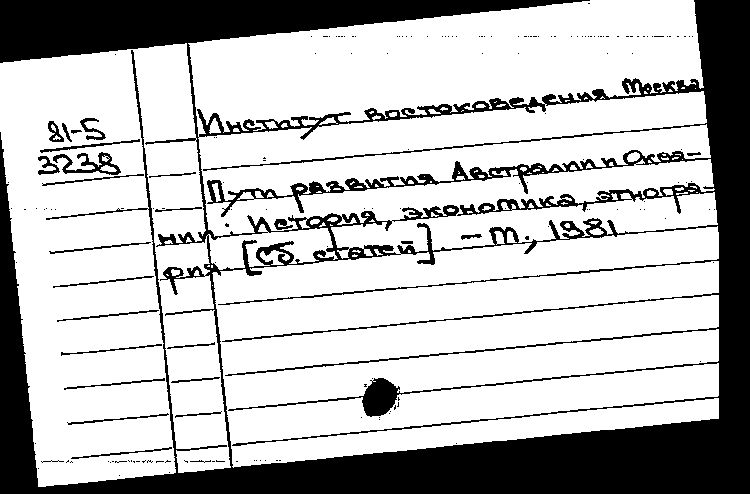 81-5
3238
Институт востоковедения. Москва
Пути развития Австралии и Океа-
нии: История, экономика, этногра-
фия. [Сб. статей]. - М., 1981